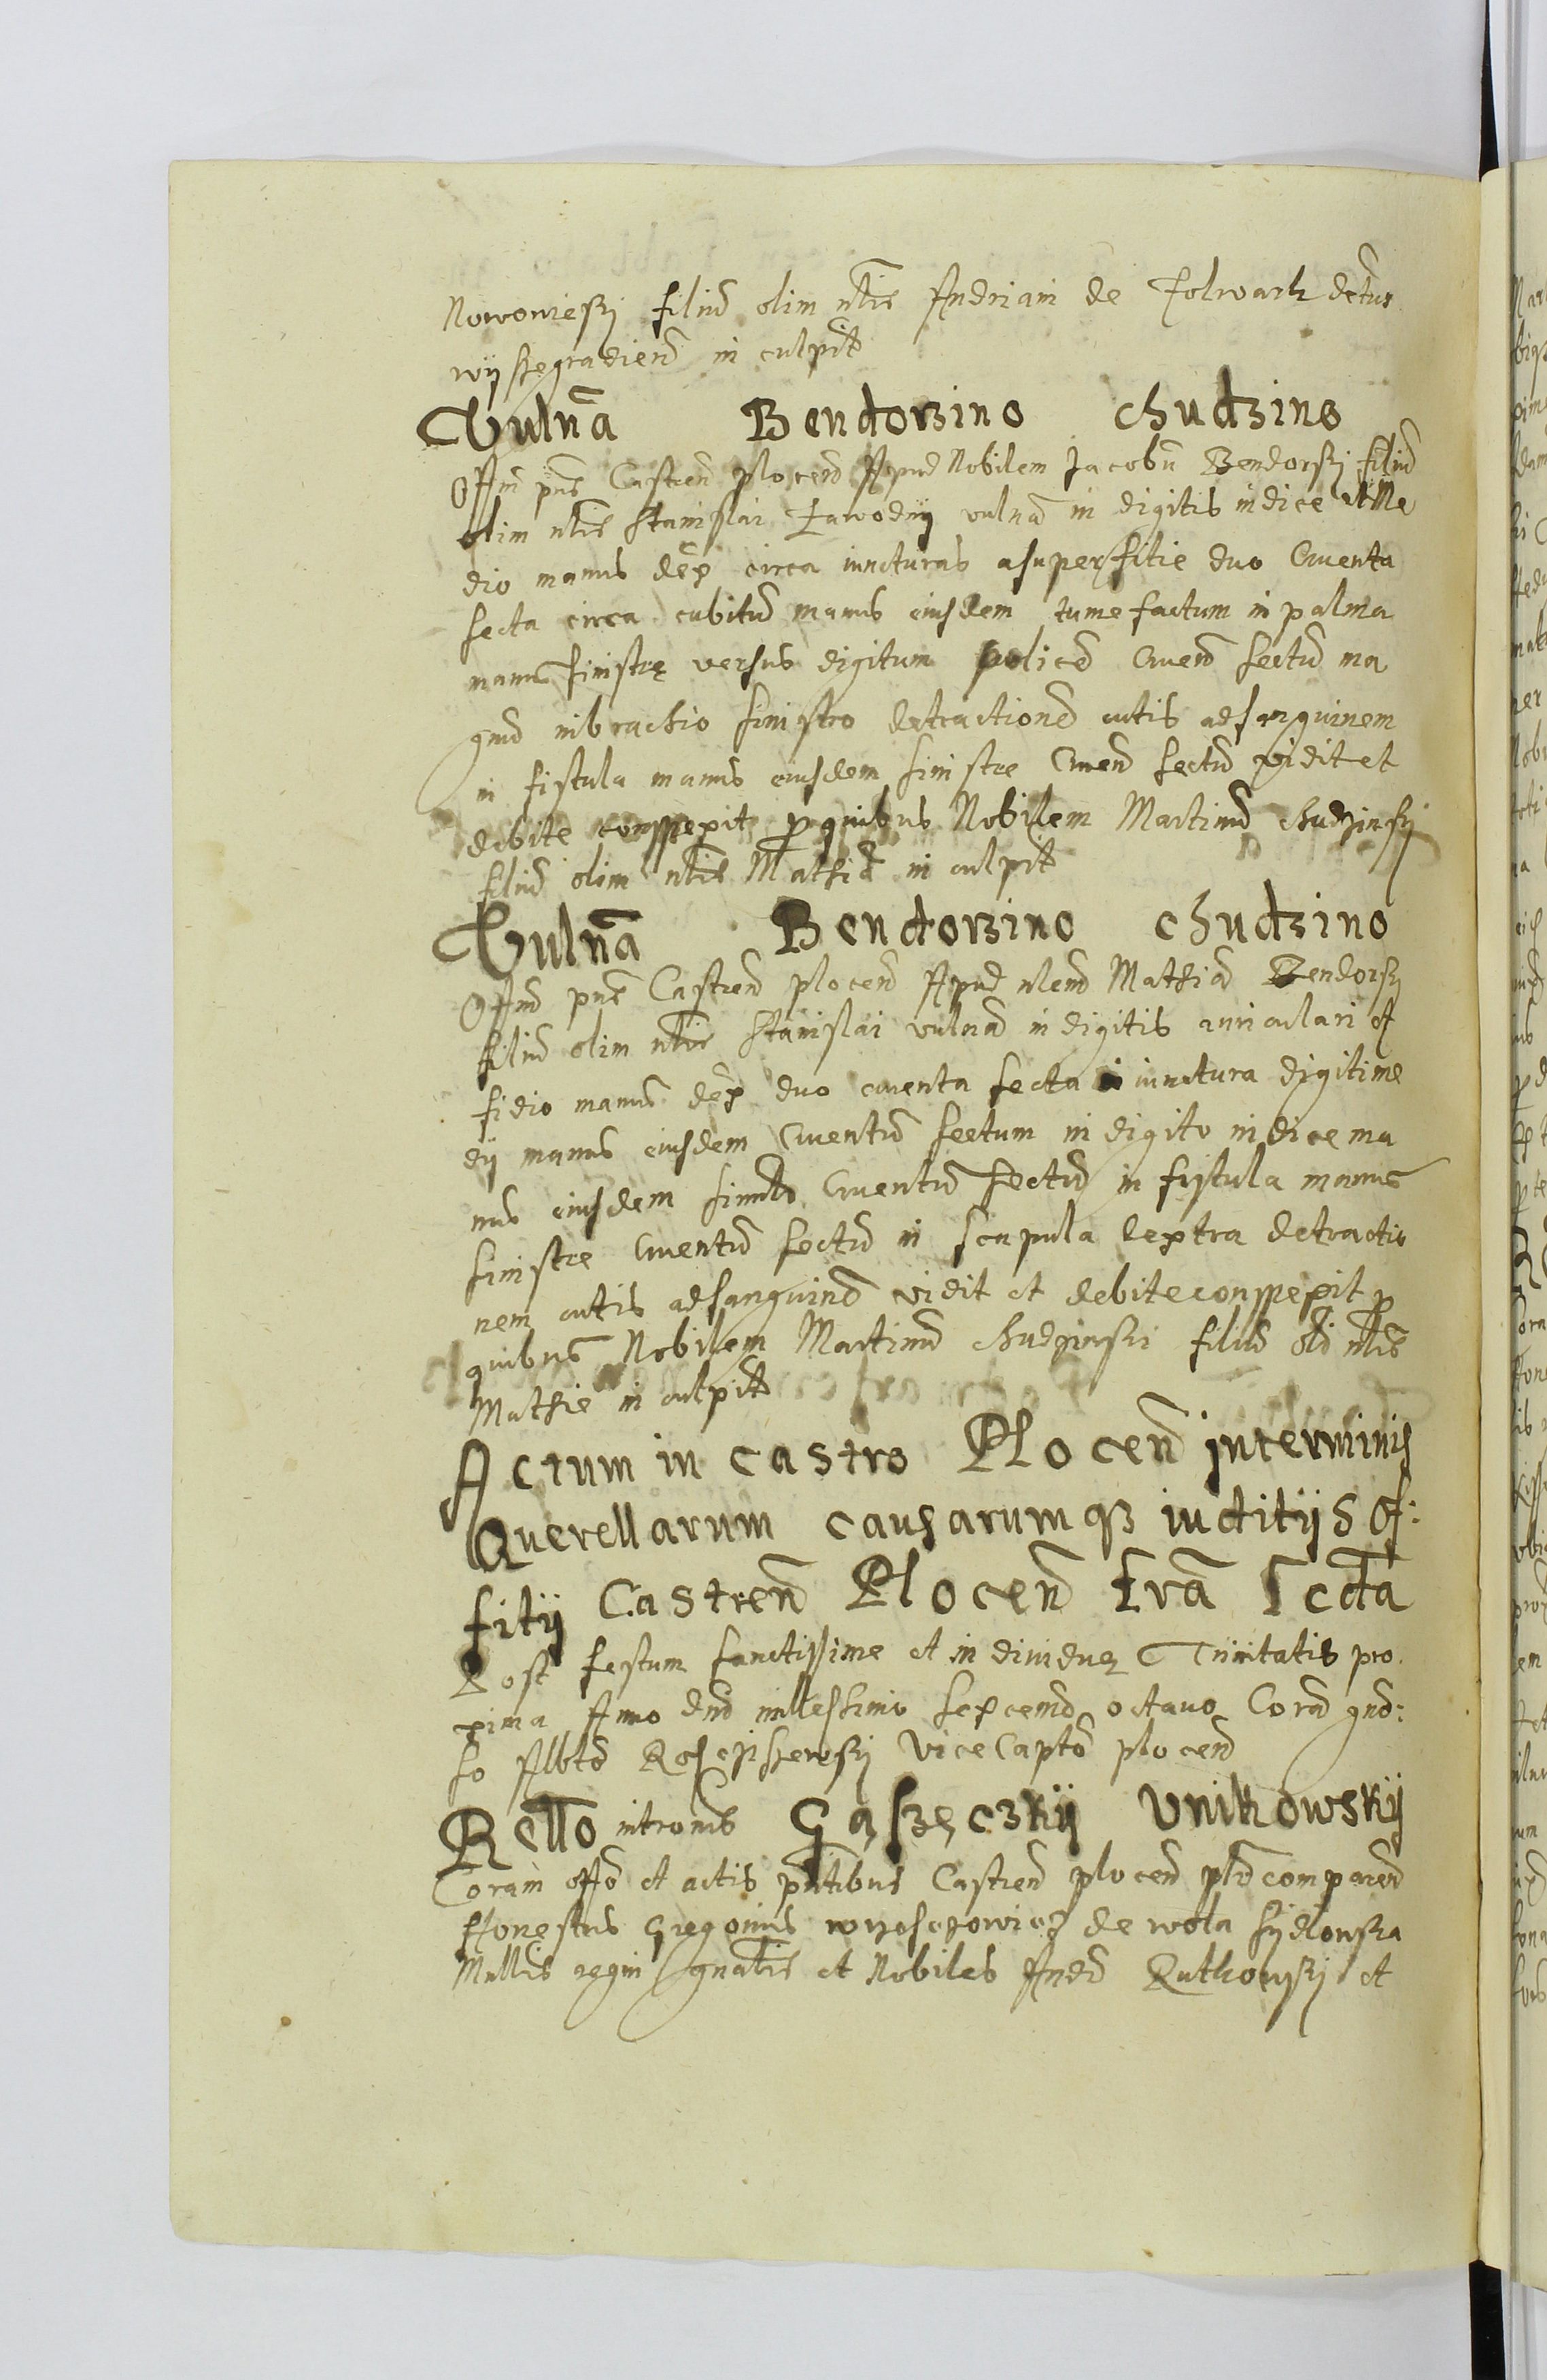 Nowowieſkÿ filiũ olim nlĩs Andriani de Folwark dctus
wÿſzegradien̄ in culpit
Vuln̄a Bendorzino chudzino
Offm pn̄s Castren̄ plocen̄ Apud Nobilem Jacobũ Bendorſkÿ filiũ
olim nlĩs Staniſlai vuln̄a in digitis indice et Me
dio manus dex̃ circa iuncturas a ſuperfitie duo Cruenta
ſecta circa cubitũ manus eiuſdem tumefactum in palma
manus ſiniſtrę verſus digitum policẽ Cruen̄ ſectũ ma
gnũ in brachio ſiniſtro detractionẽ cutis ad ſanguinem
in fiſtula manus eiuſdem ſiniſtre Cruen̄ ſectũ vidit et
debite conſpexit p quibus Nobilem Martinũ chudzinſkÿ
filiũ olim nlĩs Mathię in culpit
Vuln̄a Bendorzino chudzino
Offm̄ pn̄s Castren̄ plocen̄ Apud nlem̄ Mathiã Bendorſkÿ
filiũ olim nlĩs Staniſlai vuln̄a in digitis auriculari et
fidio manus dex̃ duo cruenta ſecta iunctura digiti me
dÿ manus eiuſdem Cruentũ ſectum in digito indice ma
nus eiuſdem Cruentũ ſectũ in fiſtula manus
ſiniſtre Cruentũ ſectũ in ſcapula dextra detractio
nem cutis ad ſanguinẽ vidit et debite conſpexit p
quibus Nobilem Martinũ chudzinſki filiũ oli nlĩs
Mathie in culpit
Actum in castro Plocen̄ in terminis
Querellarum causarumqȝ iuditÿs Of:
fitÿ Castren̄ Plocen̄ Fr̄a Scd̄a
Post feſtum ſanctiſſime et indiuiduę Trinitatis pro
xima Anno dn̄i milleſſimo ſexcenmo octauo Corã gn̄o:
ſo Albtõ Vice Captõ plocen̄
Rello intromis Gąſzęczkÿ Vnikowskÿ
Coram Offo et actis pn̄tibus Castren̄ plocen̄ pln̄ comparen̄
Honeſtus Gregorius de wola ſÿdlowſka
Mnllis regni gnalĩs et Nobiles And̃ Rutkowſkÿ et